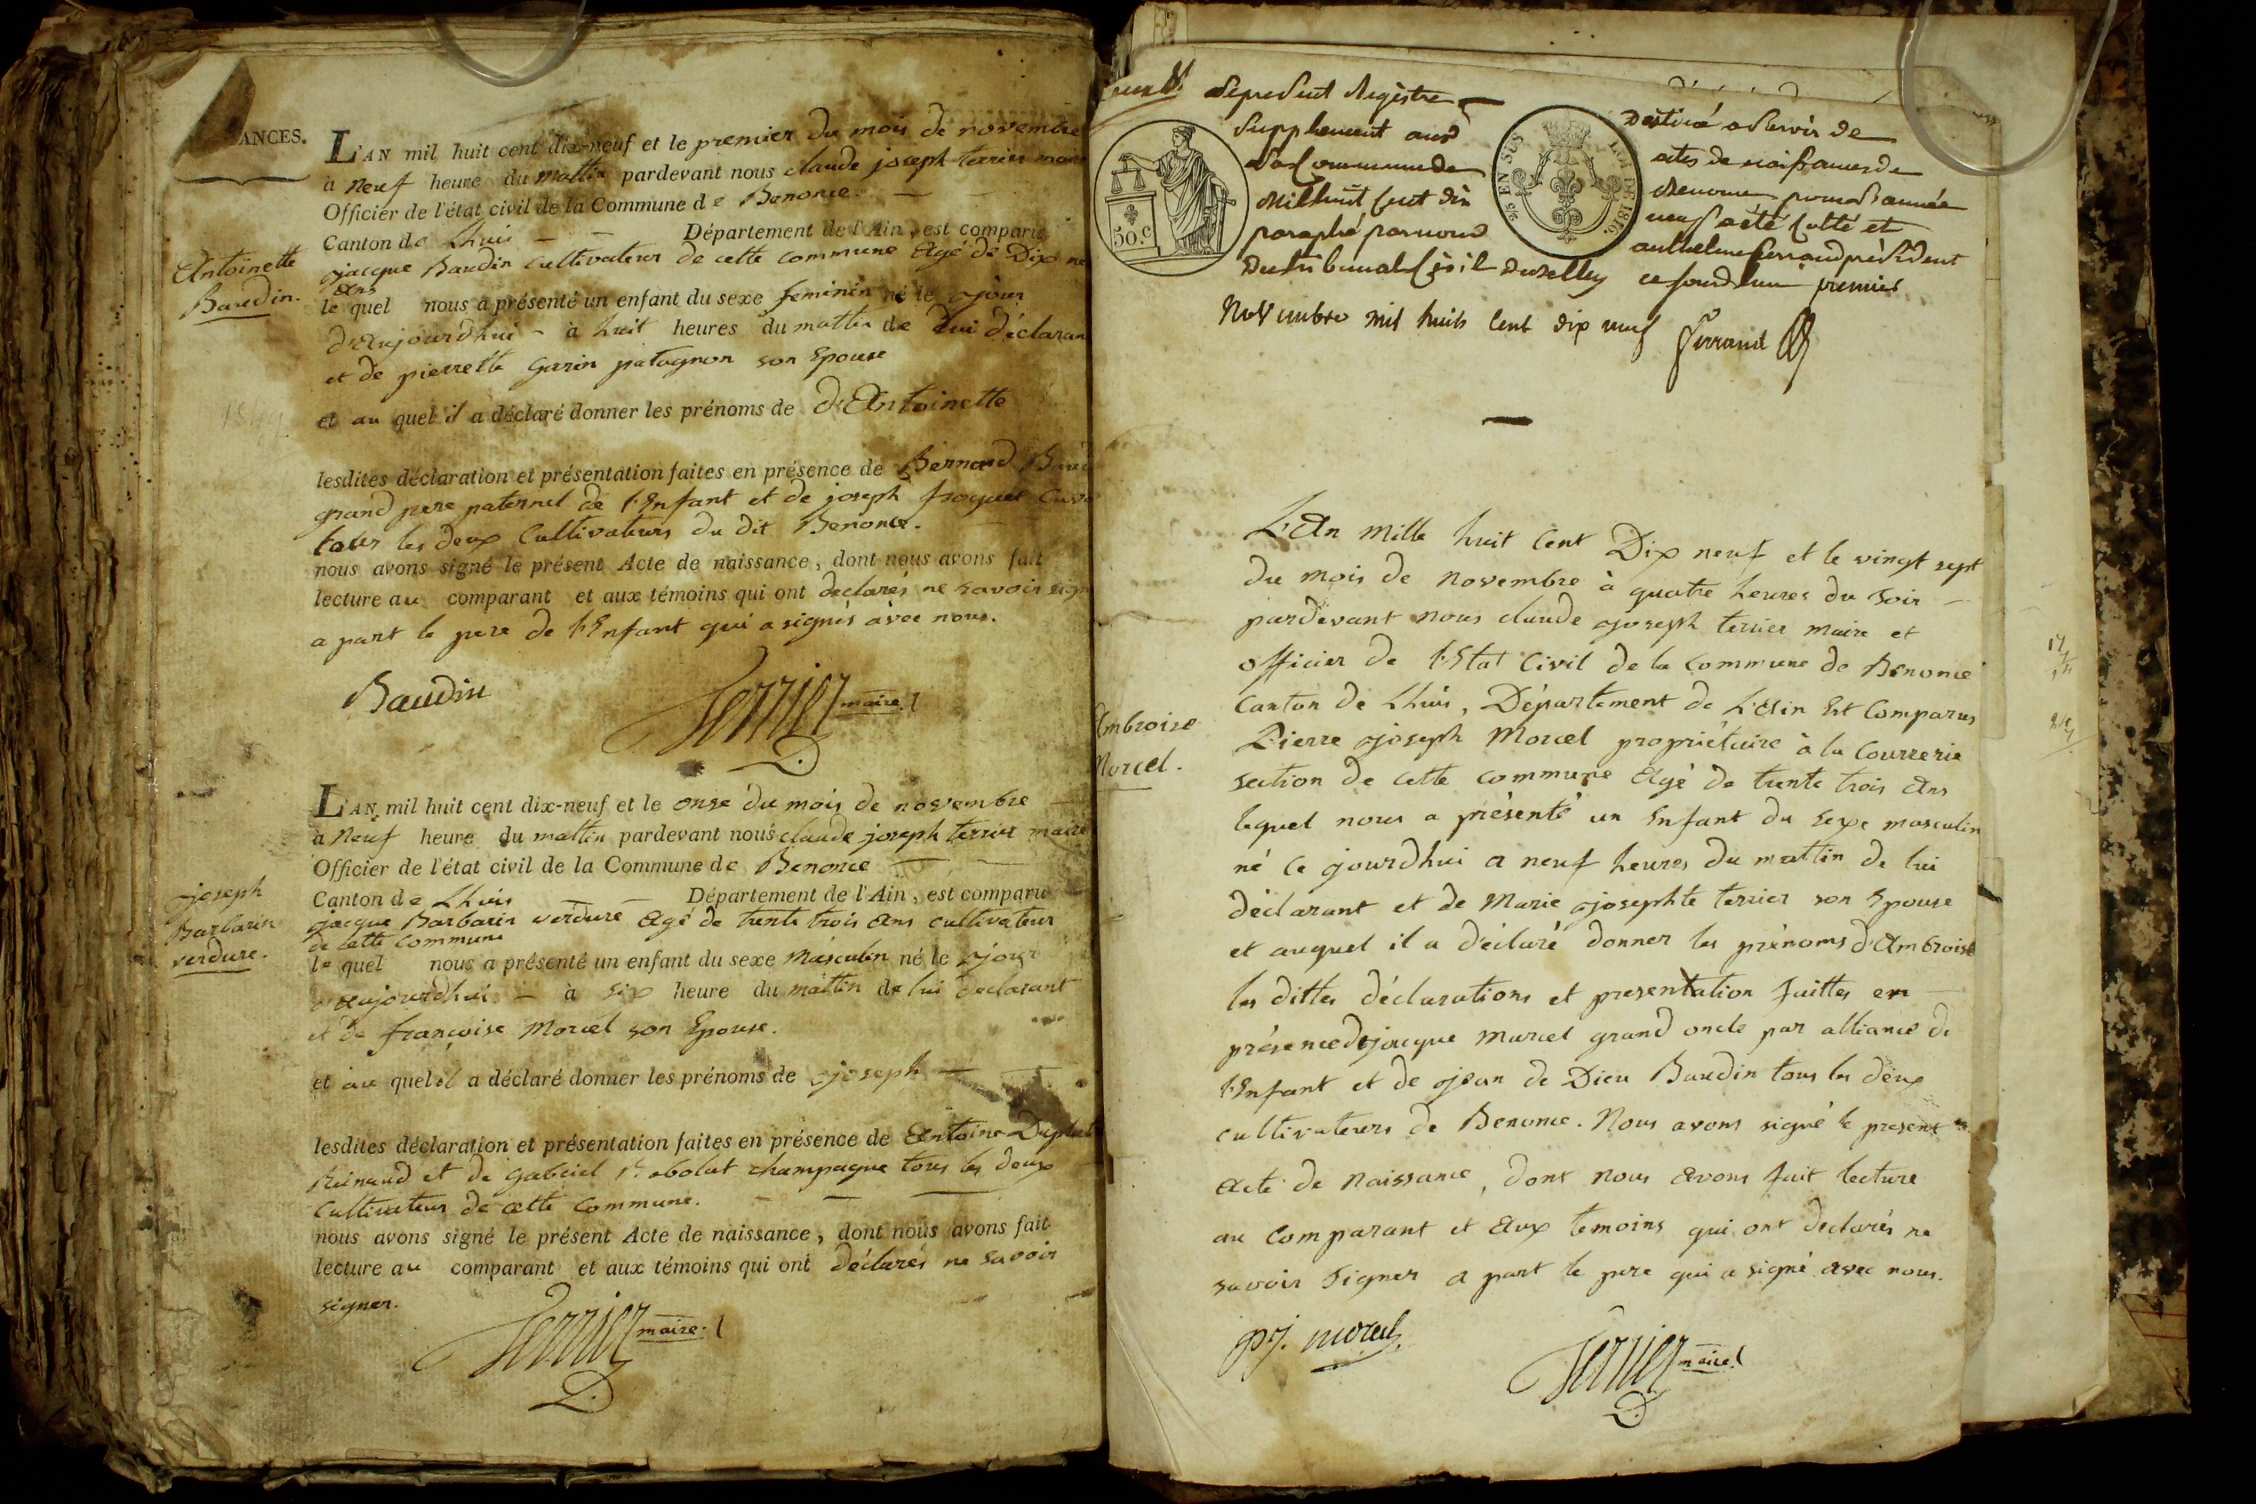 ANCES.
L'AN mil huit cent dix-neuf et le premier du mois de novembre
à neuf heure du mattin pardevant nous claude joseph terrier maire
Officier de l'état civil de la Commune de Benonce
Canton de Lhuis Département de l'Ain, est comparu
jacque Baudin cultivateur de cette commune Agé de Dix
Ans
Antoinette
Baudin.
le quel nous a présenté un enfant du sexe feminin né le jour
d'Aujourdhui à huit heures du mattin de lui déclarant
et de pierrette garin patagnon son Epouse
et au quel il a déclaré donner les prénoms de d'Antoinette
lesdites déclaration et présentation faites en présence de Bernard
grand pere paternel de l'Enfant et de joseph
tous les deux Cultivateurs du dit Benonce.
nous avons signé le présent Acte de naissance, dont nous avons fait
lecture au comparant et aux témoins qui ont declarés ne savoir sign
a part le pere de l'Enfant qui a signés avec nous.
Baudin
Terrier maire
L'AN mil huit cent dix-neuf et le onse du mois de novembre
à neuf heure du mattin pardevant nous claude joseph terrier maire
Officier de l'état civil de la Commune de Benonce
Canton de Lhuis Département de l'Ain, est comparu
jacque Barbarin verdure Agé de trente trois Ans cultivateur
de cette commune
joseph
Barbarin
verdure.
le quel nous a présenté un enfant du sexe Masculin né le jour
d'aujourdhui à six heure du mattin de lui declarant
et de françoise Morcel son Epouse.
et au quel il a déclaré donner les prénoms de joseph
lesdites déclaration et présentation faites en présence de Antoine
et de gabriel champagne tous les deux
Cultivateur de cette Commune.
nous avons signé le présent Acte de naissance, dont nous avons fait
lecture au comparant et aux témoins qui ont déclarés ne savoir
signer.
Terrier maire.
Le present Registre
Supplement aux
la Commune de
Mil huit Cent dix
paraphé par nous
du tribunal Civil de Belley
50.c
25 EN SUS
LOI DE 1816.
Destiné a Servir de
actes de naissances de
Benonce pour l'année
neuf a été Cotté et
anthelme ferrand président
ce jourdhui premier
Novembre mil huit Cent dix neuf ferrand
L'An Mille huit Cent Dix neuf et le vingt sept
du mois de novembre à quatre heures du soir
pardevant nous claude joseph terrier maire et
officier de l'Etat Civil de la commune de Benonce
Canton de Lhuis, Département de L'Ain Est Comparus
Ambroise
Morcel.
Pierre joseph Morcel propriétaire à la Courrerie
section de cette commune Agé de trente trois Ans
lequel nous a présenté un Enfant du sexe masculin
né ce jourdhui a neuf heures du mattin de lui
déclarant et de Marie josephte terrier son Epouse
et auquel il a déclaré donner les prénoms d'Ambroise
les dittes déclarations et presentation faittes en
présence de jacque Marcel grand oncle par alliance de
l'Enfant et de jean de Dieu Baudin tous les deux
cultivateurs de Benonce. Nous avons signé le present
Acte de Naissance, dont nous avons fait lecture
au Comparant et Aux temoins qui ont declarés ne
savoir signer a part le pere qui a signé avec nous.
pj. morcel
Terrier maire